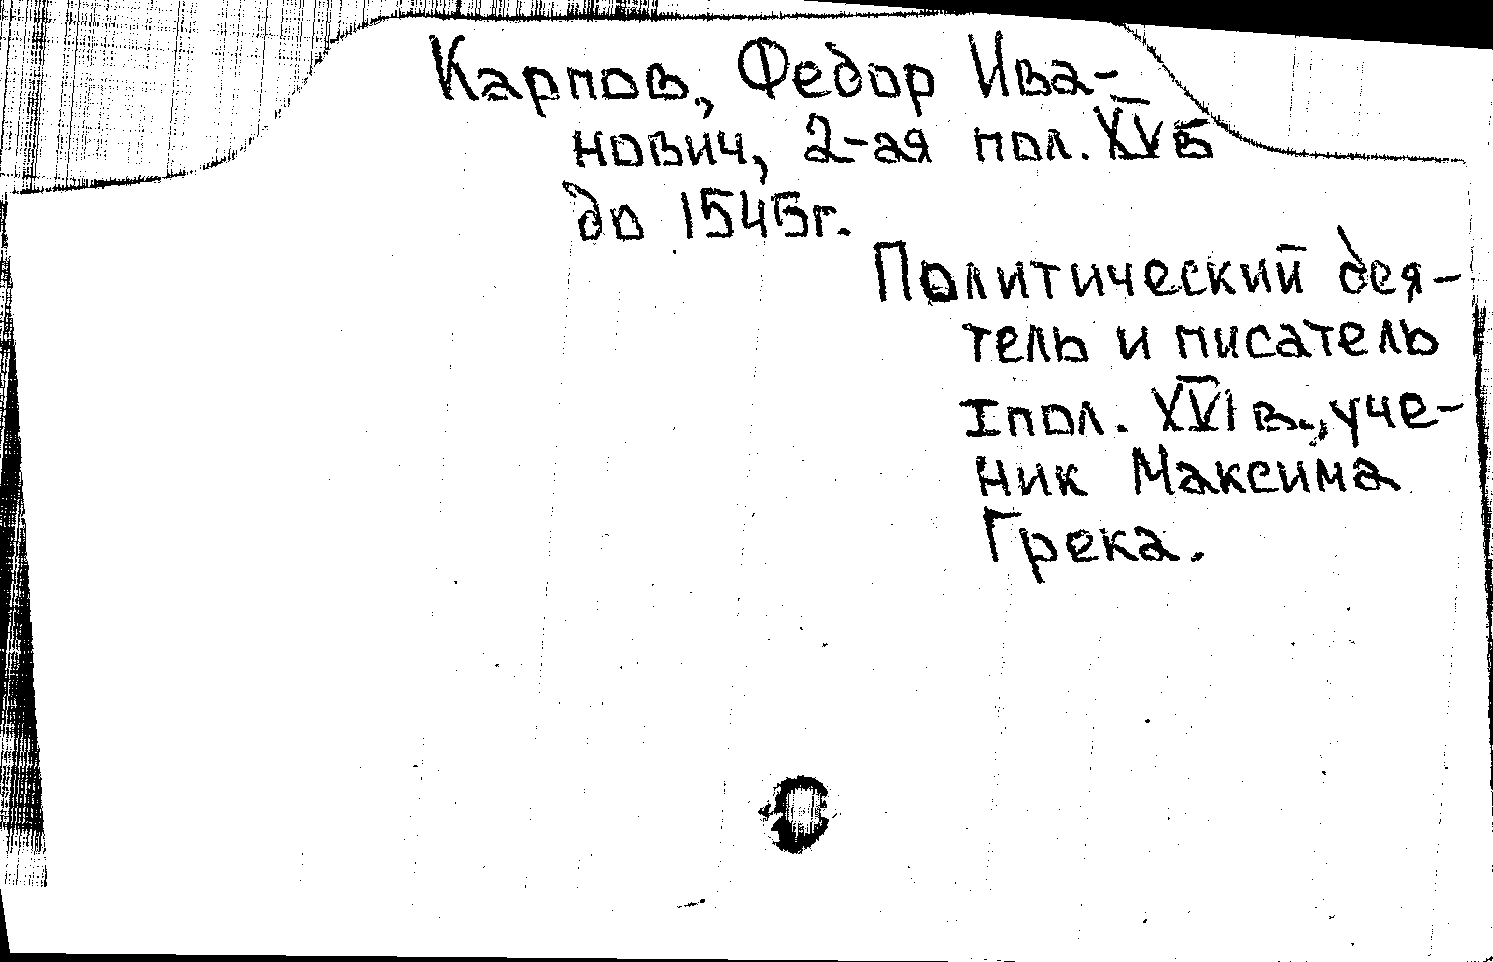 Карпов, Федор Ива-
нович, 2-ая пол. XV в
до 1545г.
Политический дея-
тель и писатель
I пол. XVI в., уче-
ник Максима
Грека.